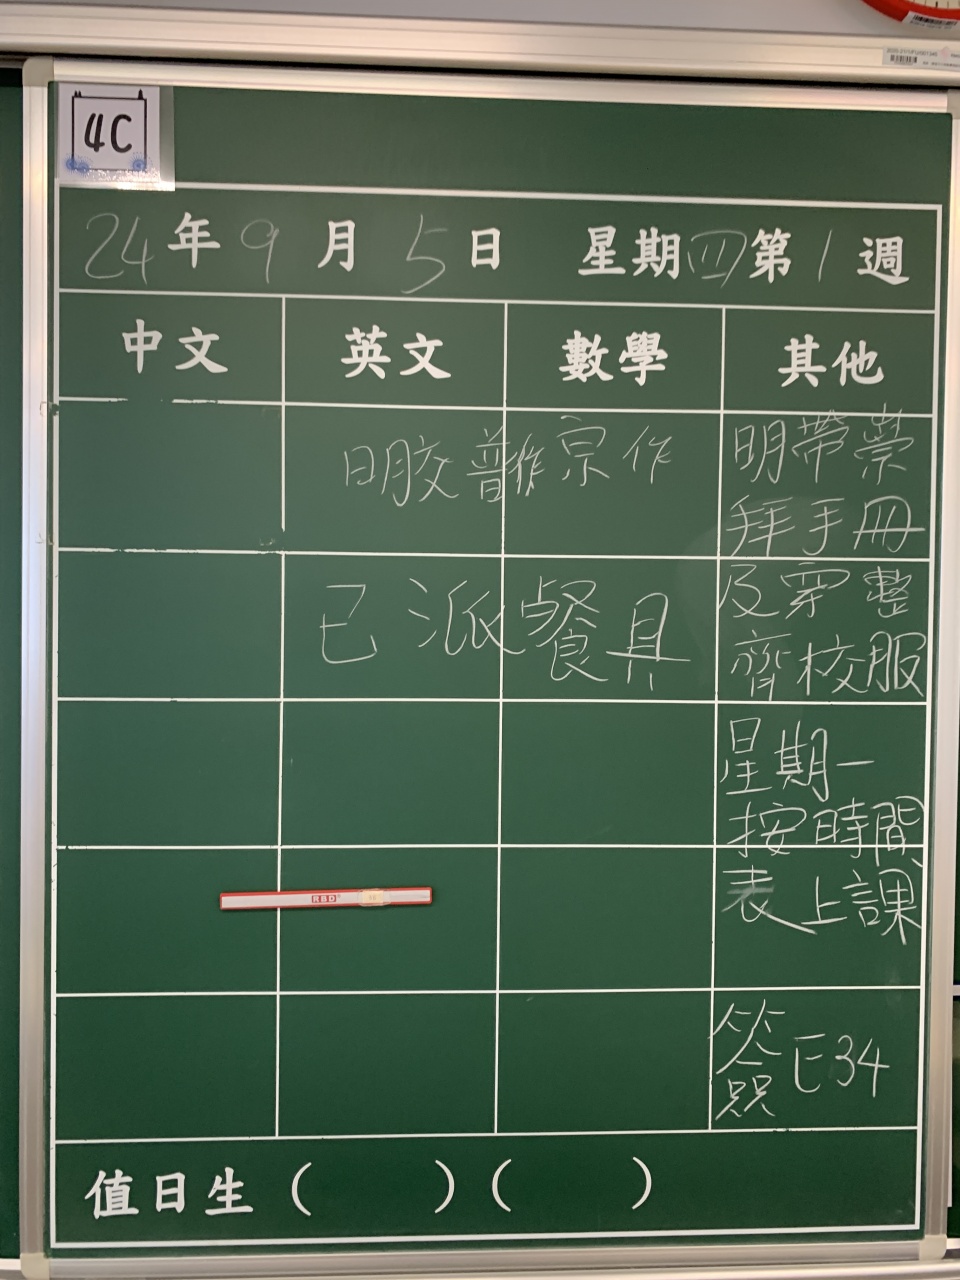 4C
24年9月5日 星期四第1週
中文 英文 數學 其他
明交普作宗作
已派餐具
明帶崇
拜手冊
及穿整
齊校服
星期一
按時間
表上課
簽E34
RBD
值日生( )( )